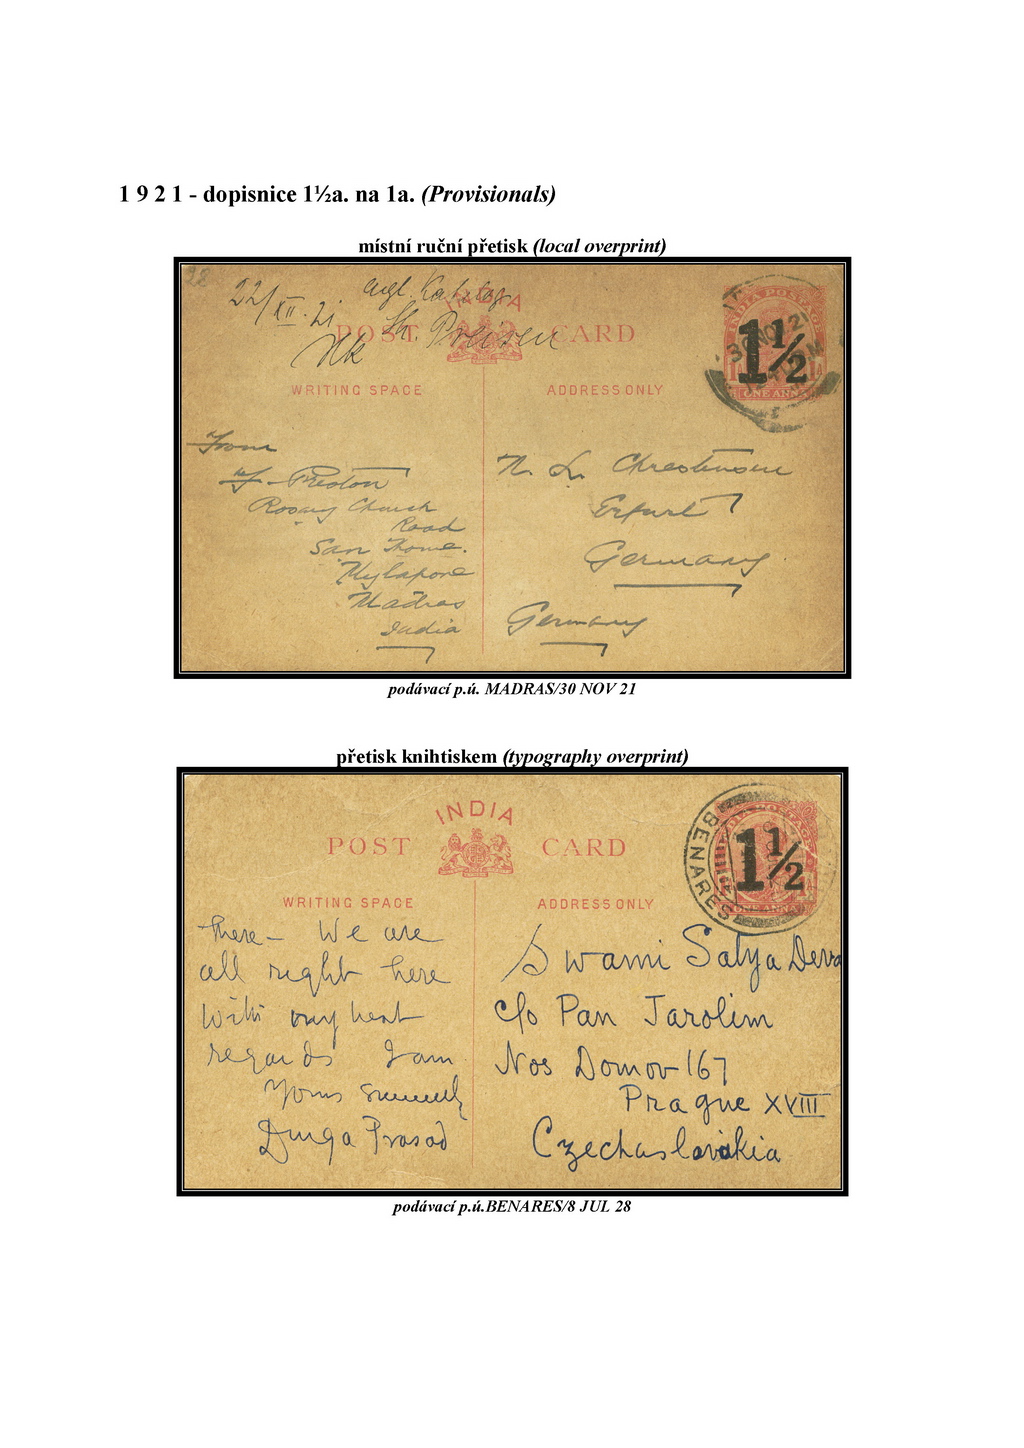 1 9 2 1 - dopisnice 1½a. na 1a. (Provisionals)
místní ruční přetisk (local overprint)
22/XII. 21
INDIA
POST CARD
WRITING SPACE
ADDRESS ONLY
INDIA POSTAGE
1½
30 NOV 21
ONE ANNA
From
Preston
Rosary Church
Road
San Thome.
Mylapore
Madras
India
N. L. Chrestensen
Erfurt
Germany
Germany
podávací p.ú. MADRAS/30 NOV 21
přetisk knihtiskem (typography overprint)
INDIA
POST CARD
WRITING SPACE
ADDRESS ONLY
1½
BENARES
there - We are
all right here
With my best
regards I am
Yours sincerely
Durga Prasad
Swami Satya Deva
c/o Pan Jarolim
Nos Domov 167
Prague XVIII
Czechaslovakia
podávací p.ú.BENARES/8 JUL 28